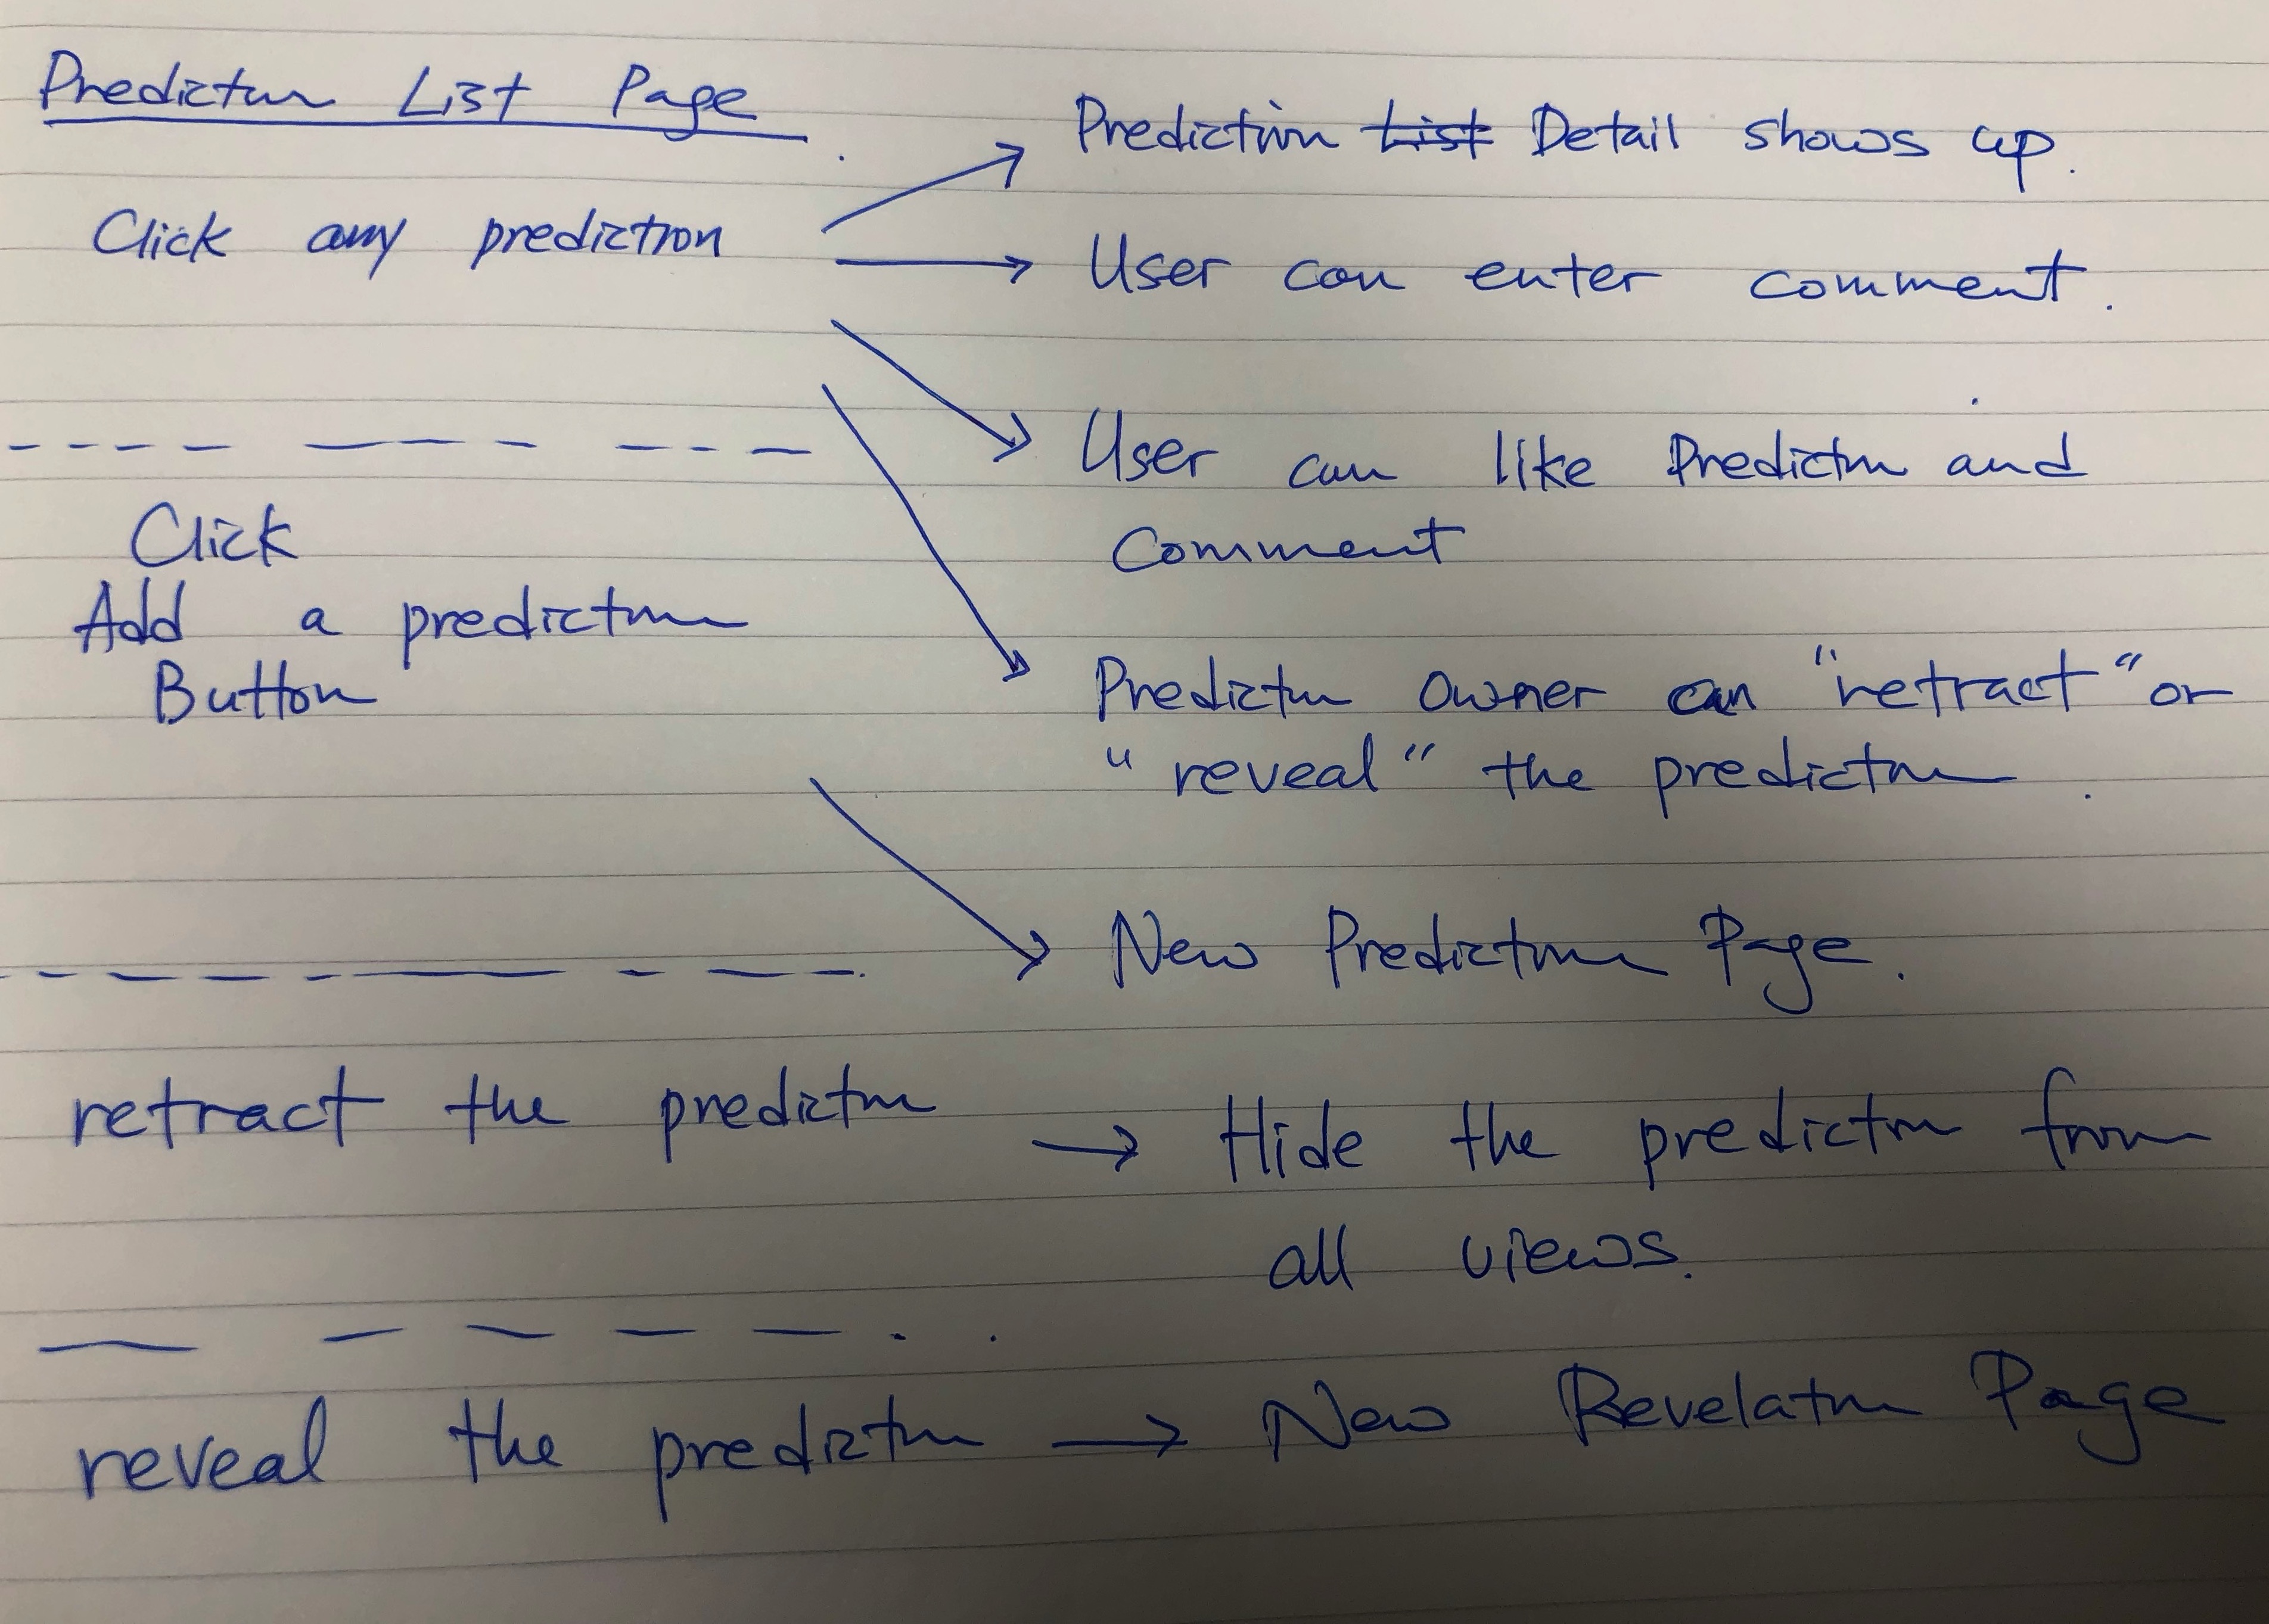 Prediction List Page.
Click any prediction
Prediction List Detail shows up.
User can enter comment.
User can like Prediction and
Comment
Prediction Owner can "retract" or
"reveal" the prediction.
Click
Add a prediction
Button
New Prediction Page.
retract the prediction → Hide the prediction from
all views.
reveal the prediction → New Revelation Page